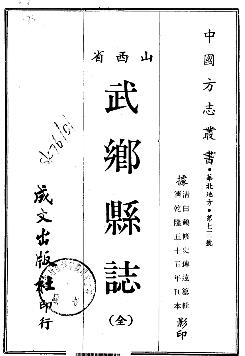 中國方志叢書・華北地方・第七二號
據清白鶴修史傳遠纂輯
清乾隆五十五年刊本影印
山西省
武鄉縣誌
(全)
成文出版社印行